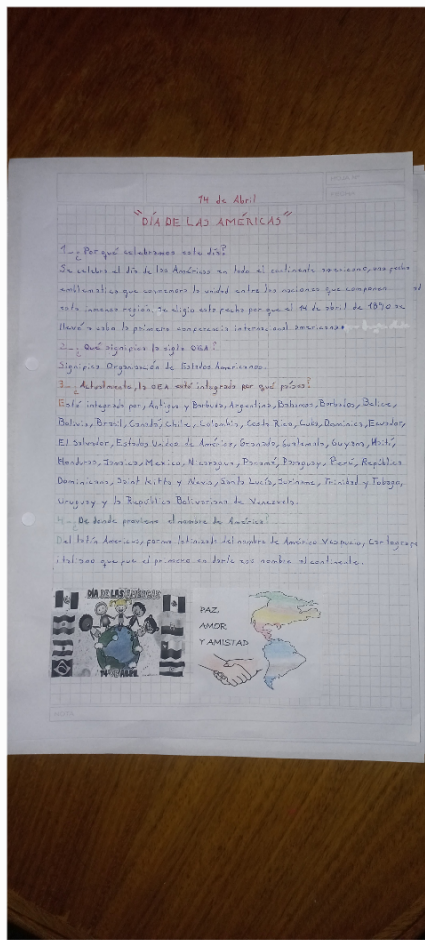 14 de Abril
"DÍA DE LAS AMÉRICAS"
1_¿Por qué celebramos este día?
Se celebra el día de las Américas en todo el continente americano, una fecha
emblemática que conmemora la unidad entre las naciones que componen
esta inmensa región. Se eligió esta fecha por que el 14 de abril de 1890 se
llevó a cabo la primera conferencia internacional americana
2_¿Qué significa la sigla OEA?
Significa Organización de Estados Americanos.
3_¿Actualmente, la OEA está integrada por qué países?
Está integrada por, Antigua y Barbuda, Argentina, Bahamas, Barbados, Belice,
Bolivia, Brasil, Canadá, Chile, Colombia, Costa Rica, Cuba, Dominica, Ecuador,
El Salvador, Estados Unidos de América, Granada, Guatemala, Guyana, Haití,
Honduras, Jamaica, Mexico, Nicaragua, Panamá, Paraguay, Perú, República
Dominicana, Saint Kitts y Nevis, Santa Lucía, Suriname, Trinidad y Tobago,
Uruguay y la República Bolivariana de Venezuela.
¿De donde proviene el nombre de América?
Del latín Americus, forma latinizada del nombre de Américo Vespucio, Cartógrafo
italiano que fue el primero en darle ese nombre al continente.
DÍA DE LAS AMÉRICAS
PAZ,
AMOR
Y AMISTAD
NOTA